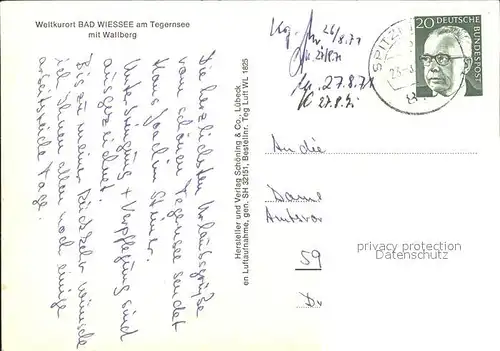 Weltkurort BAD WIESSEE am Tegernsee
mit Wallberg
Die herzlichsten Urlaubsgrüße
vom schönen Tegernsee sendet
Hans Joachim
Unterbringung + Verpflegung sind
ausgezeichnet.
Bis zu meiner Rückkehr wünsche
ich Ihnen allen noch einige
Tage.
Hersteller und Verlag Schöning & Co., Lübeck
en Luftaufnahme, gen. SH 32151, Bestellnr. Teg Luft WL 1825
26/8.71
27.8.71
27.8.71
SPITZ
20 DEUTSCHE
BUNDESPOST
An die
Dame
Amtsvor
59
privacy protection
Datenschutz